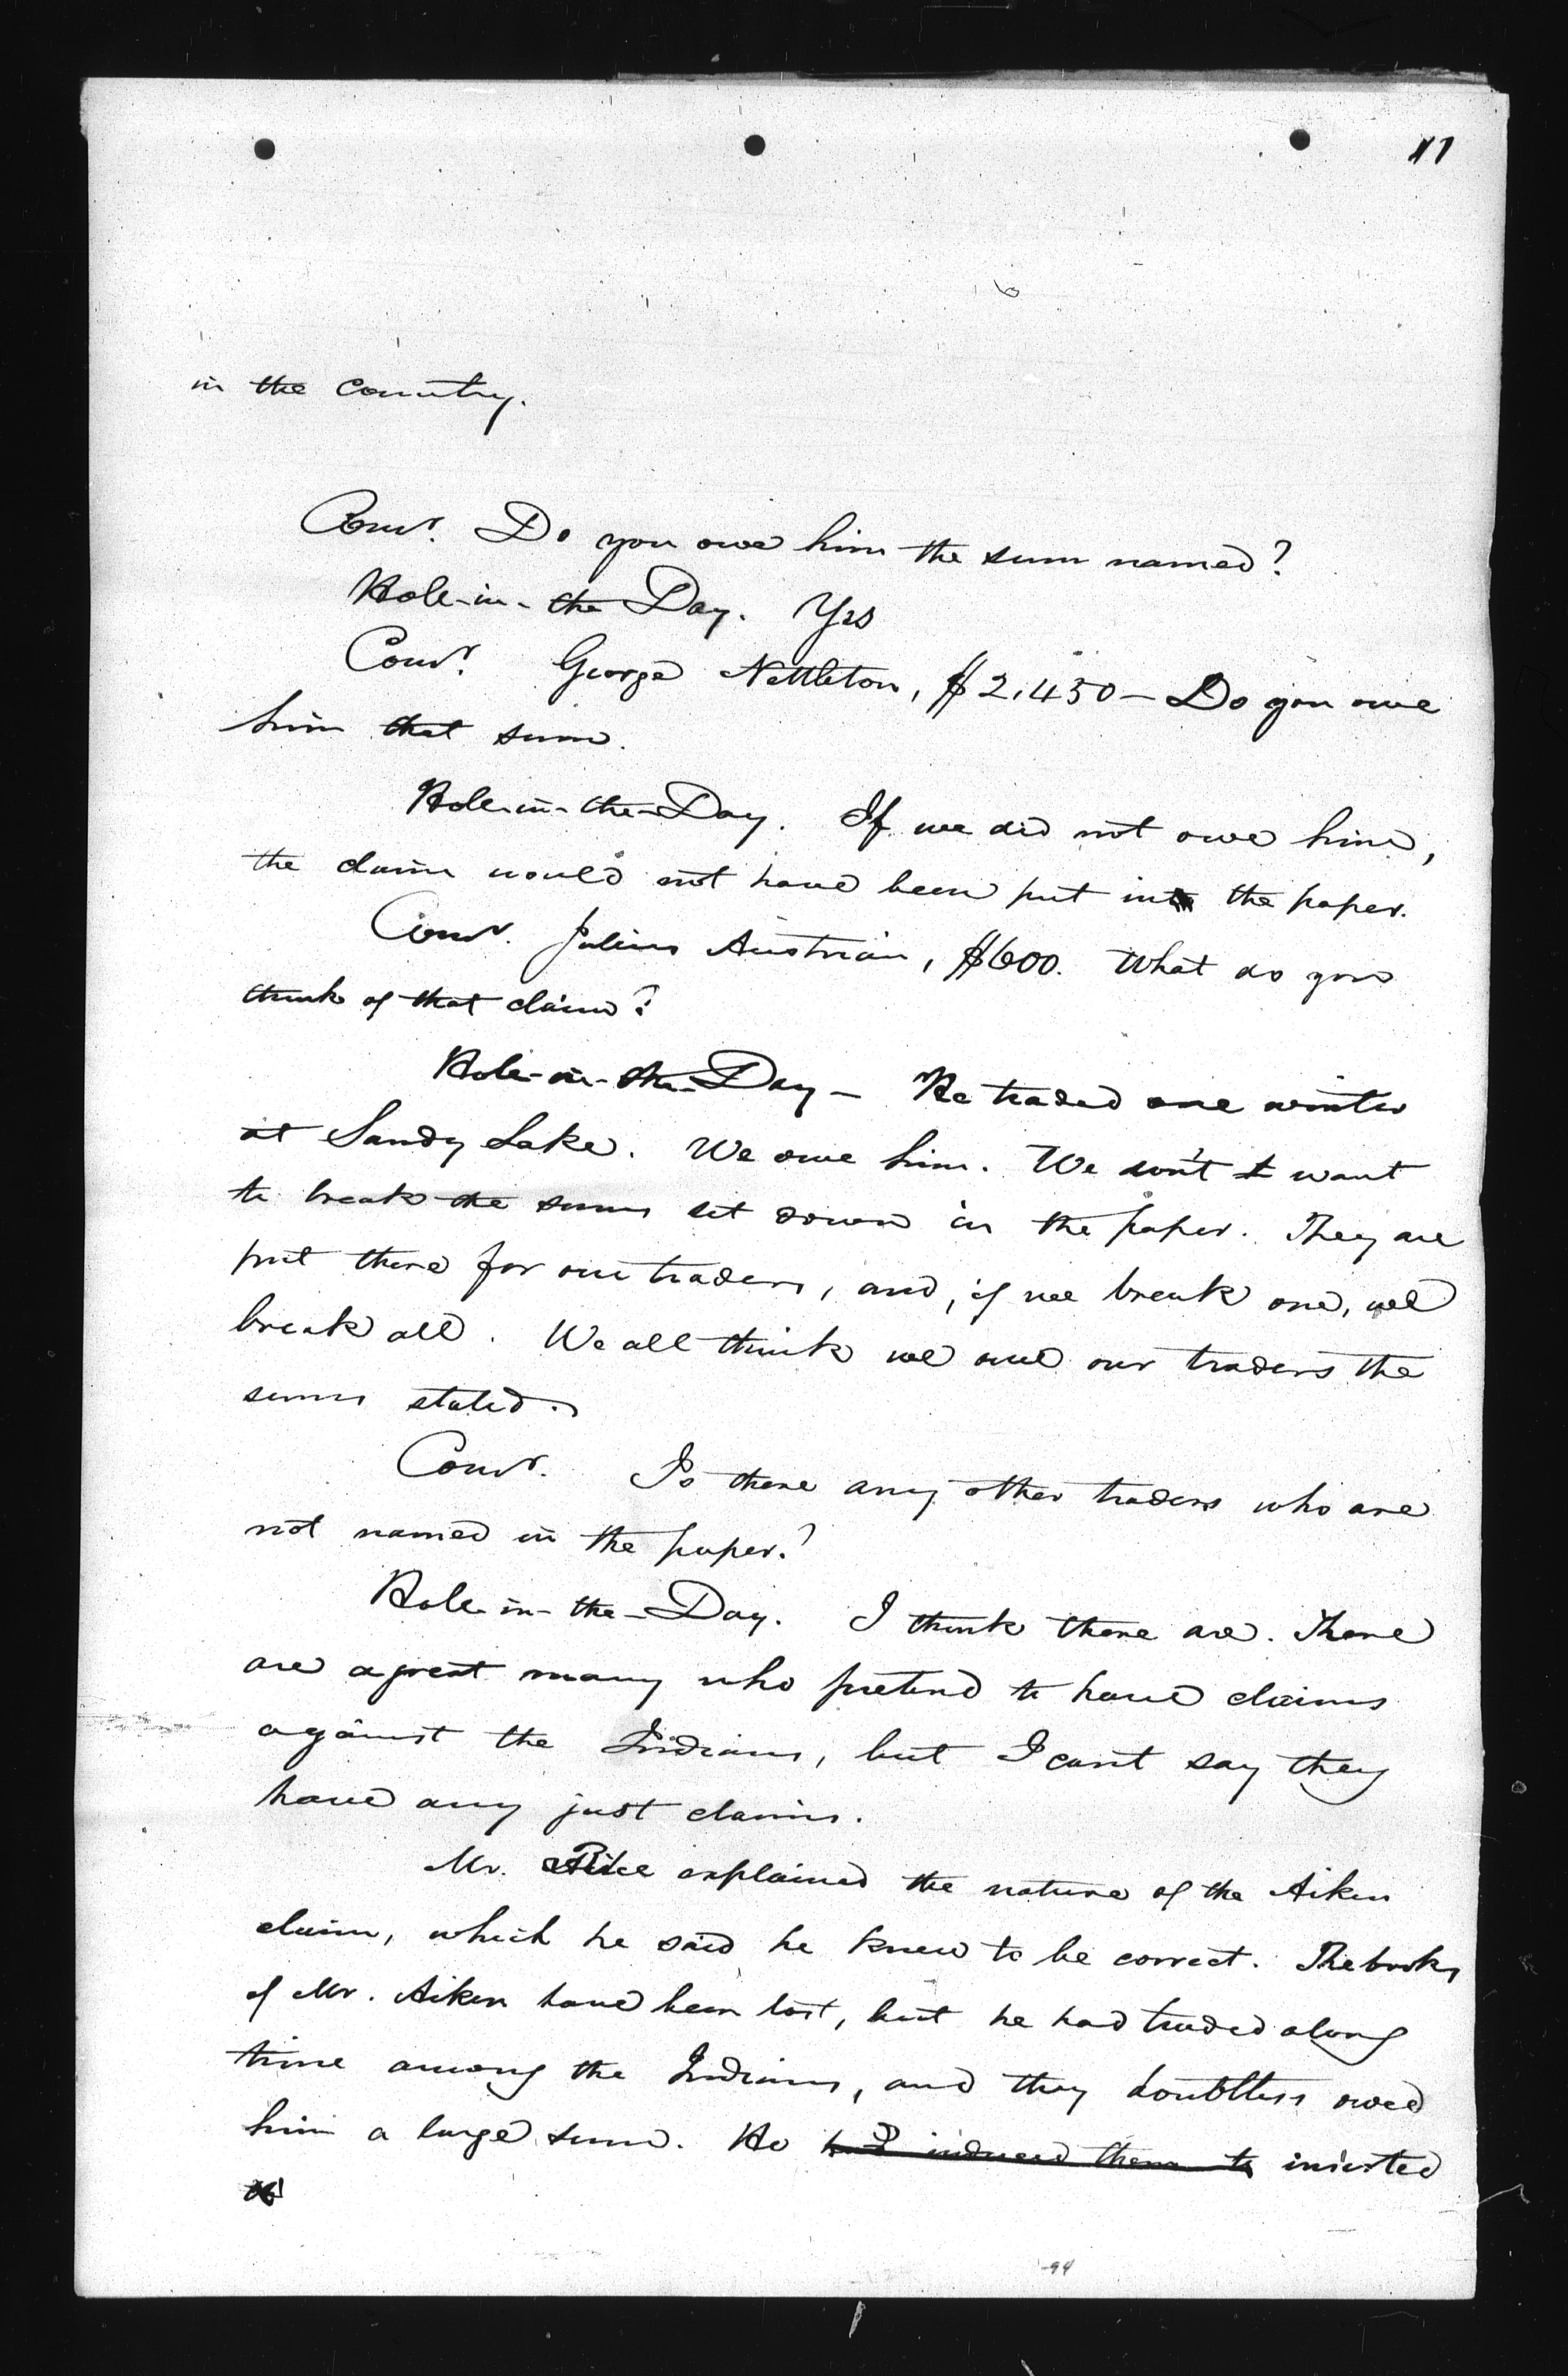 11
in the country.
Comr. Do you owe him the sum named?
Hole-in-the Day. Yes
Comr. George Nettleton, $2,450 — Do you owe
him that sum.
Hole-in-the-Day. If we did not owe him,
the claim would not have been put into the paper.
Comr. Julius Austrian, $600. What do you
think of that claim?
Hole-in-the-Day — He traded one winter
at Sandy Lake. We owe him. We don't want
to break the sums set down in the paper. They are
put there for our traders, and, if we break one, we
break all. We all think we owe our traders the
sums stated.
Comr. Is there any other traders who are
not named in the paper?
Hole-in-the-Day. I think there are. There
are a great many who pretend to have claims
against the Indians, but I can't say they
have any just claims.
Mr. Rice explained the nature of the Aiken
claim, which he said he knew to be correct. The books
of Mr. Aiken have been lost, but he had traded along
time among the Indians, and they doubtless owed
him a large sum. He had induced them to insisted
94